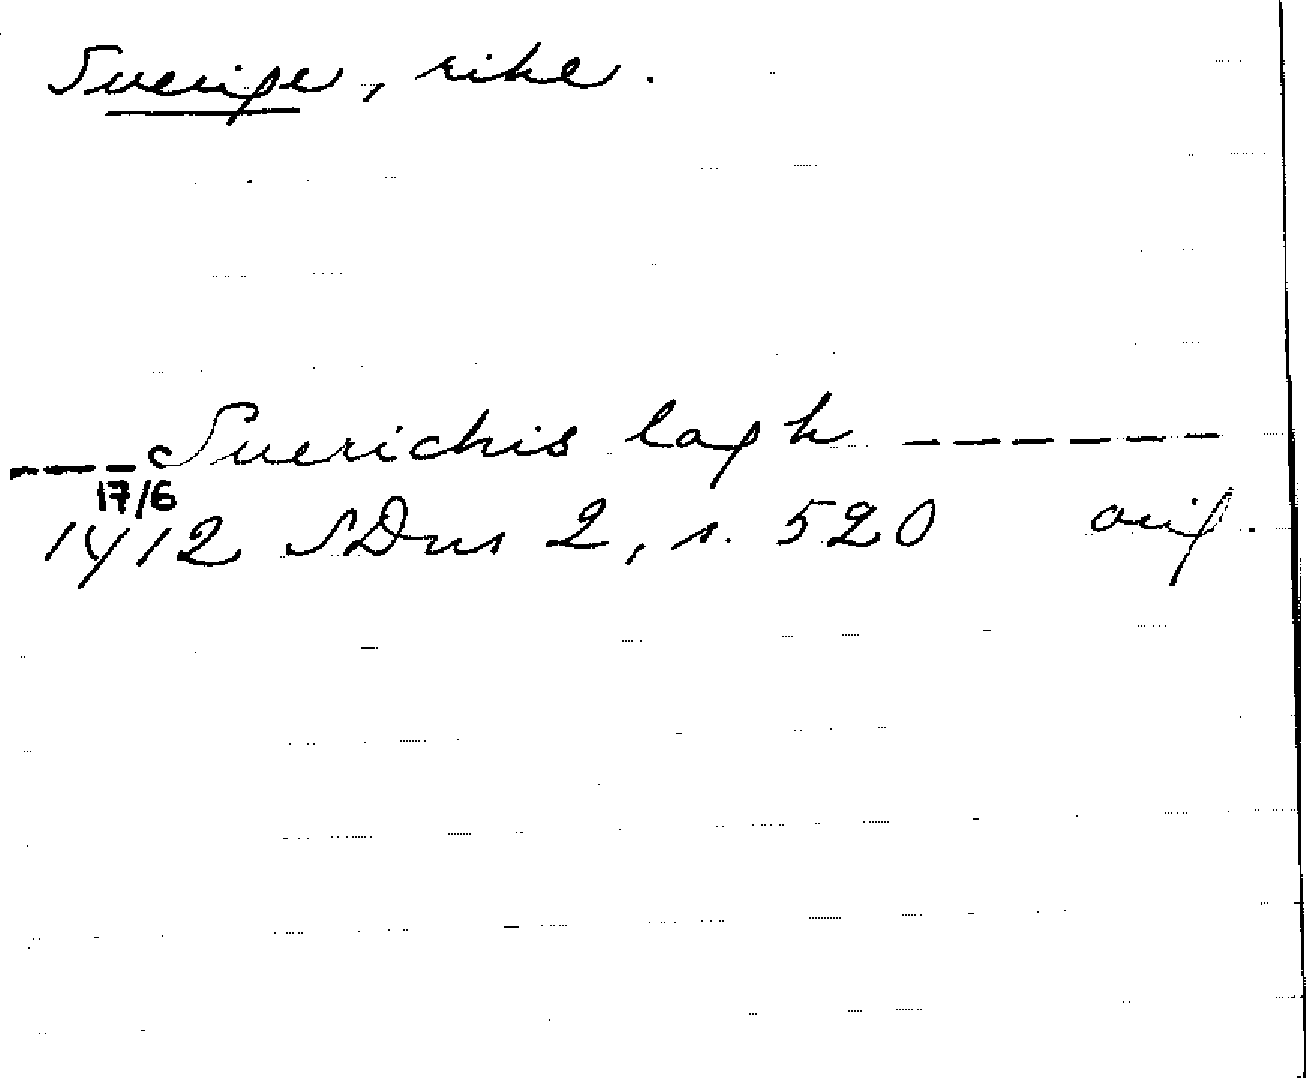 Sverige, rike.
---Suerichis lagh ------
17/6
1412 SDns 2, s. 520 orig.